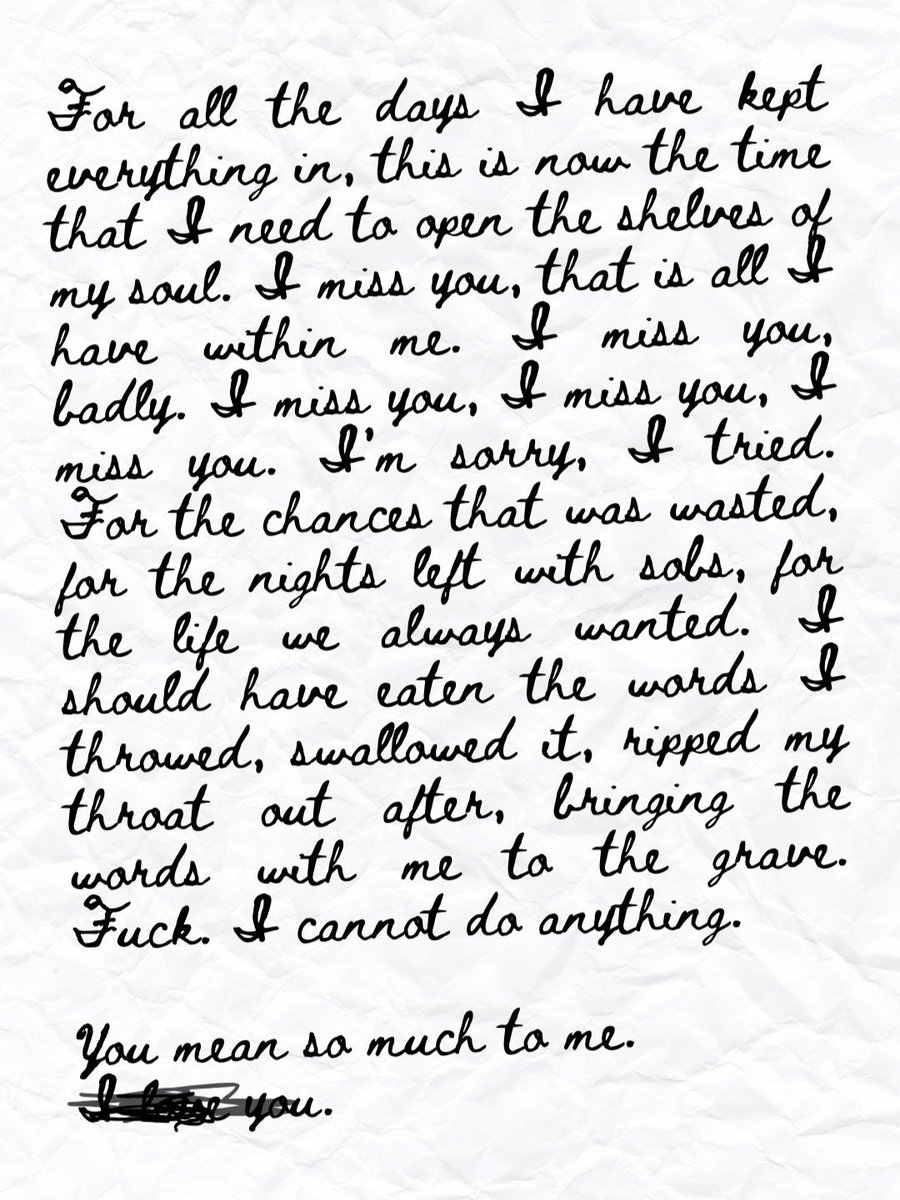 For all the days I have kept
everything in, this is now the time
that I need to open the shelves of
my soul. I miss you, that is all I
have within me. I miss you,
badly. I miss you, I miss you, I
miss you. I'm sorry, I tried.
For the chances that was wasted,
for the nights left with sobs, for
the life we always wanted. I
should have eaten the words I
throwed, swallowed it, ripped my
throat out after, bringing the
words with me to the grave.
Fuck. I cannot do anything.
You mean so much to me.
I love you.